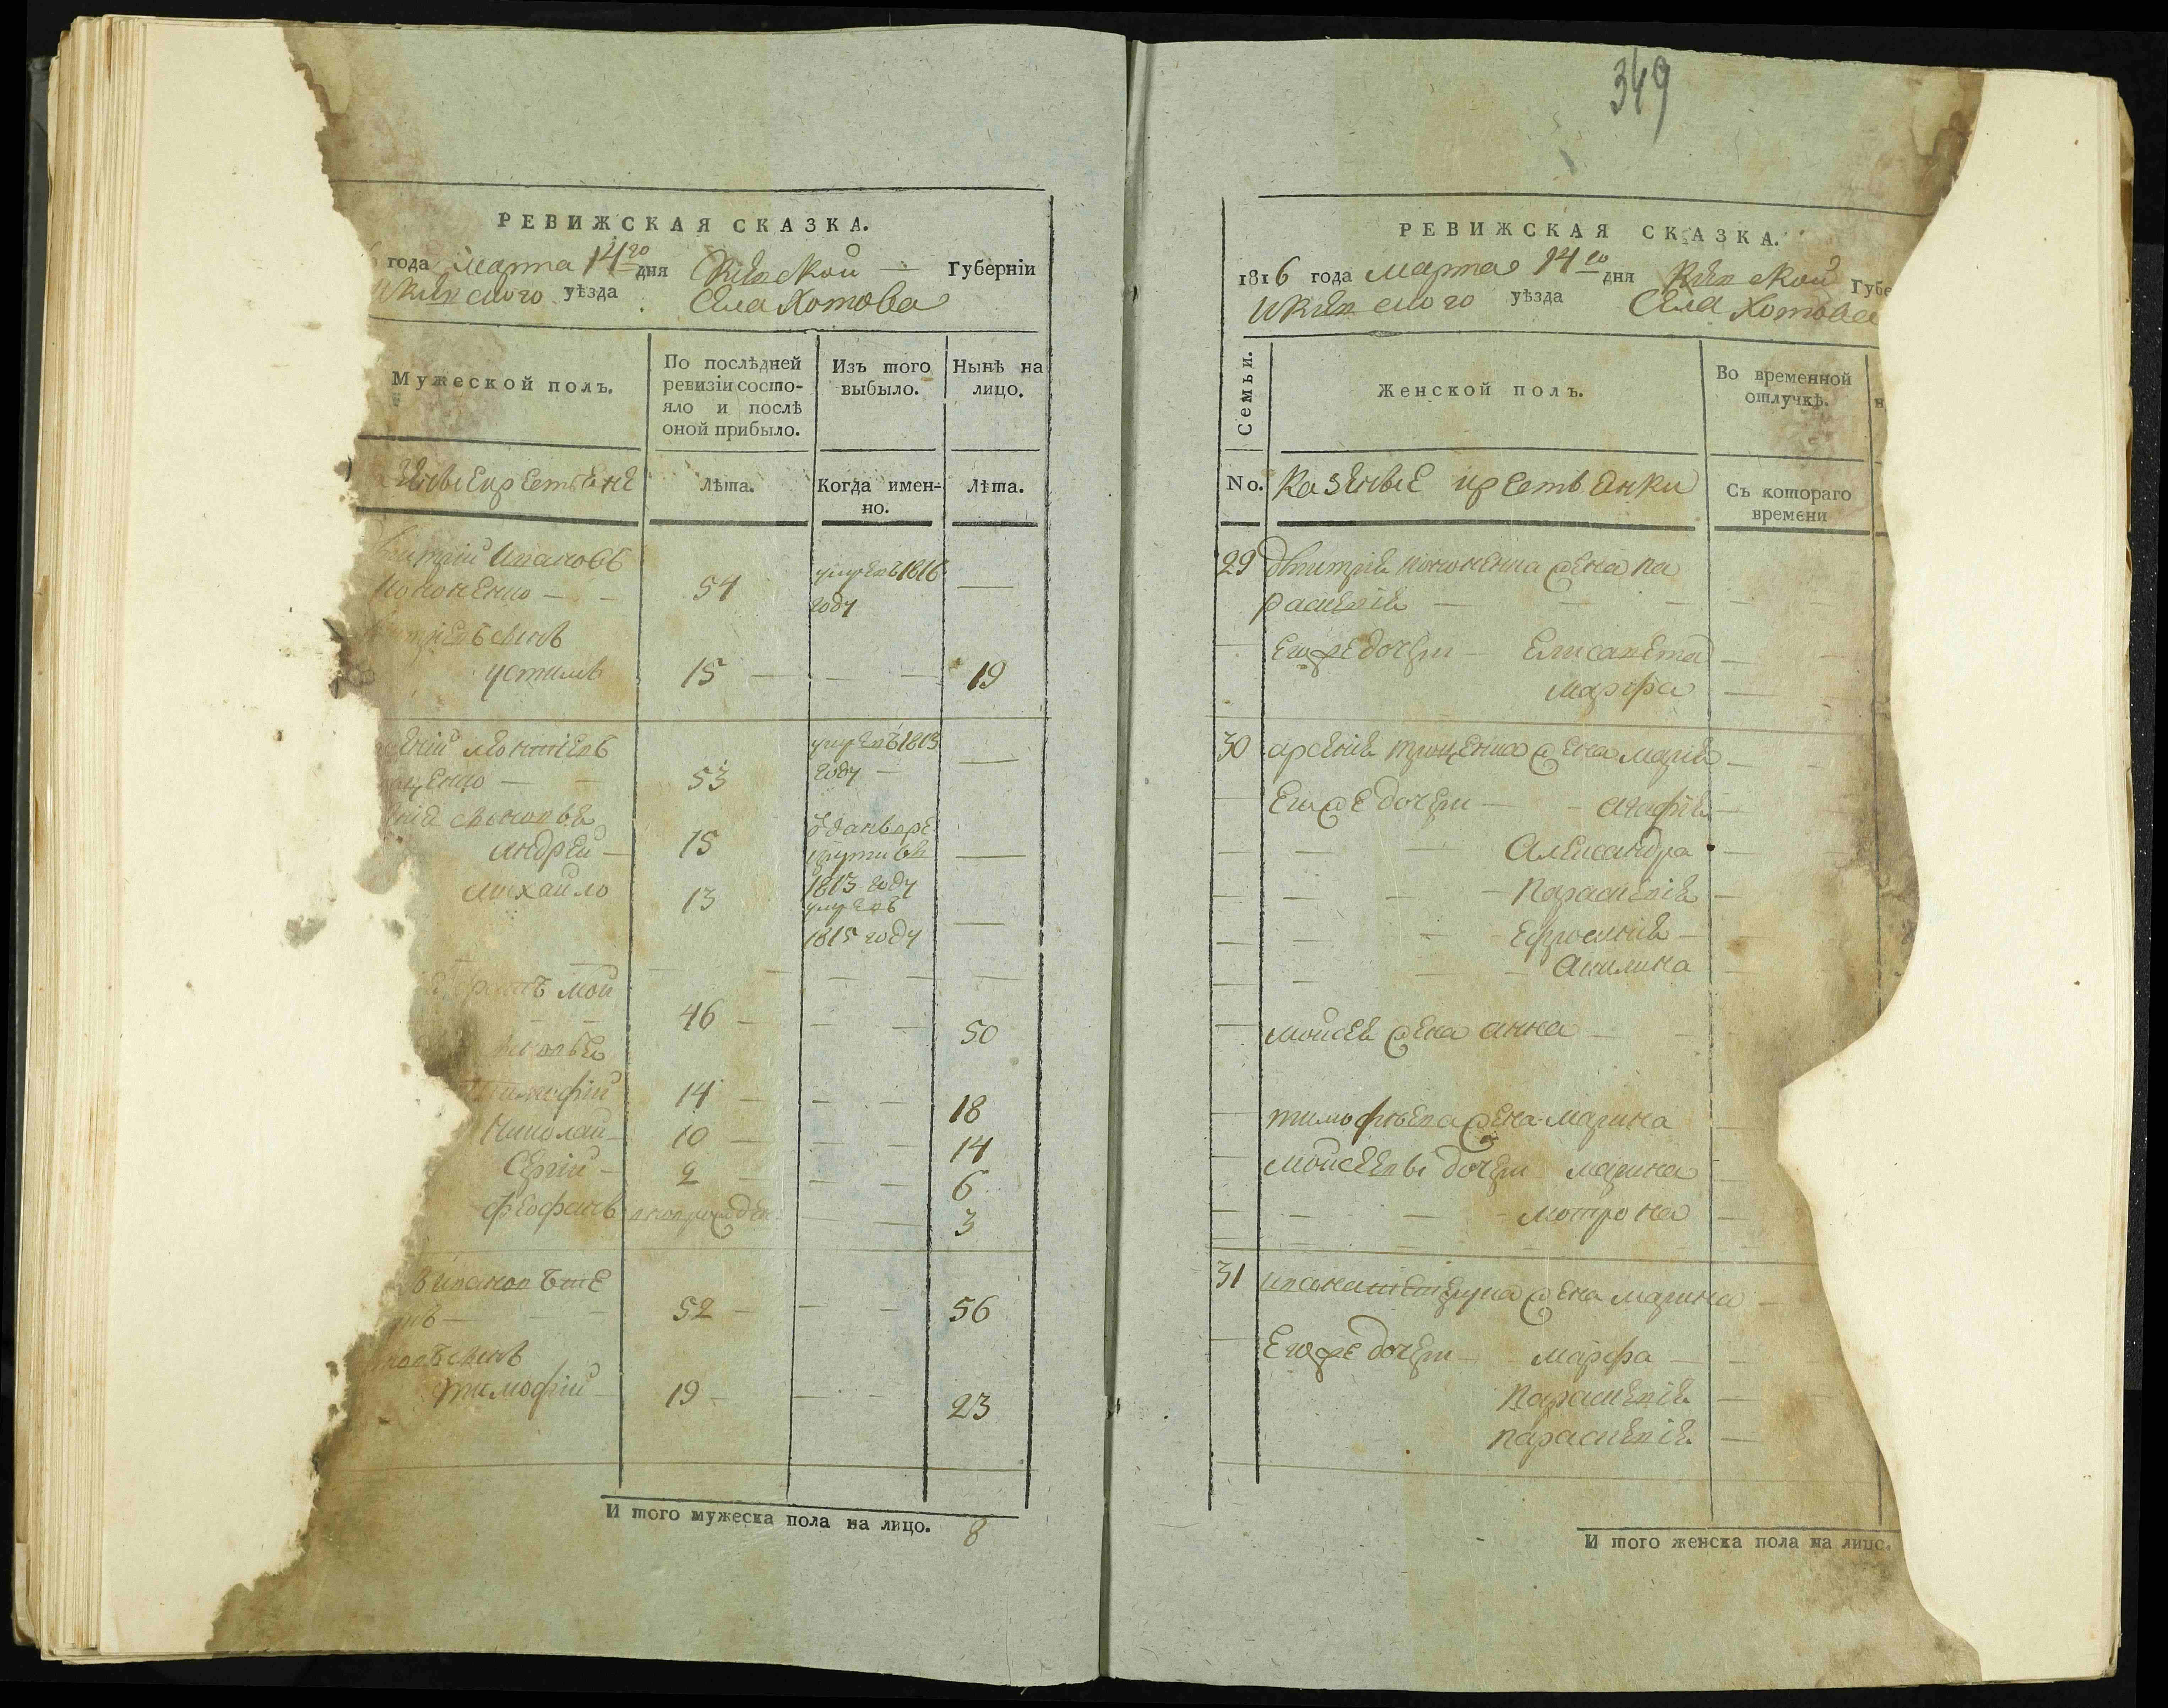 349
РЕВИЖСКАЯ СКАЗКА.
года марта 14го дня Киевской Губерніи
Икиевского уѣзда Села Хотова
Мужеской полъ.
По послѣдней
ревизіи состо-
яло и послѣ
оной прибыло.
Изъ того
выбыло.
Ныне на
лицо.
лѣта.
Когда имен-
но.
Лѣта.
Ивановъ
Кононенко 54 умревъ 1816
году
сынъ
Устимъ 15 19
Леонтіевъ умревъ 1813
53 году
сыновья
Андрей 15
1813 году
Михайло 13 умревъ
1815 году
братъ мой
46 50
Тимофій 14 18
Николай 10 14
Сергій 2 6
Феофанъ новорожден 3
Иванов
52 56
сынъ
Тимофій 19 23
И того мужеска пола на лицо. 8
РЕВИЖСКАЯ СКАЗКА.
1816 года марта 14го дня Киевской Губе
Икиевского уѣзда Села Хотова
Семьи.
Женской полъ.
Во временной
отлучкѣ.
No. Казенные крестьянки
Съ котораго
времени
29 Дмитрія Кононенка жена Па
раскевія
Егоже дочери Елисавета
Марфа
30 Арсенія Троценка жена Марія
Егоже дочери Агафія
Александра
Параскевія
Ефросинія
Акилина
Мойсея жена Анна
Тимофѣева жена Марина
Мойсеевы дочери Марина
Мотрона
31 жена Марина
Егоже дочери Марфа
Параскевія
Параскевія
И того женска пола на лицо.